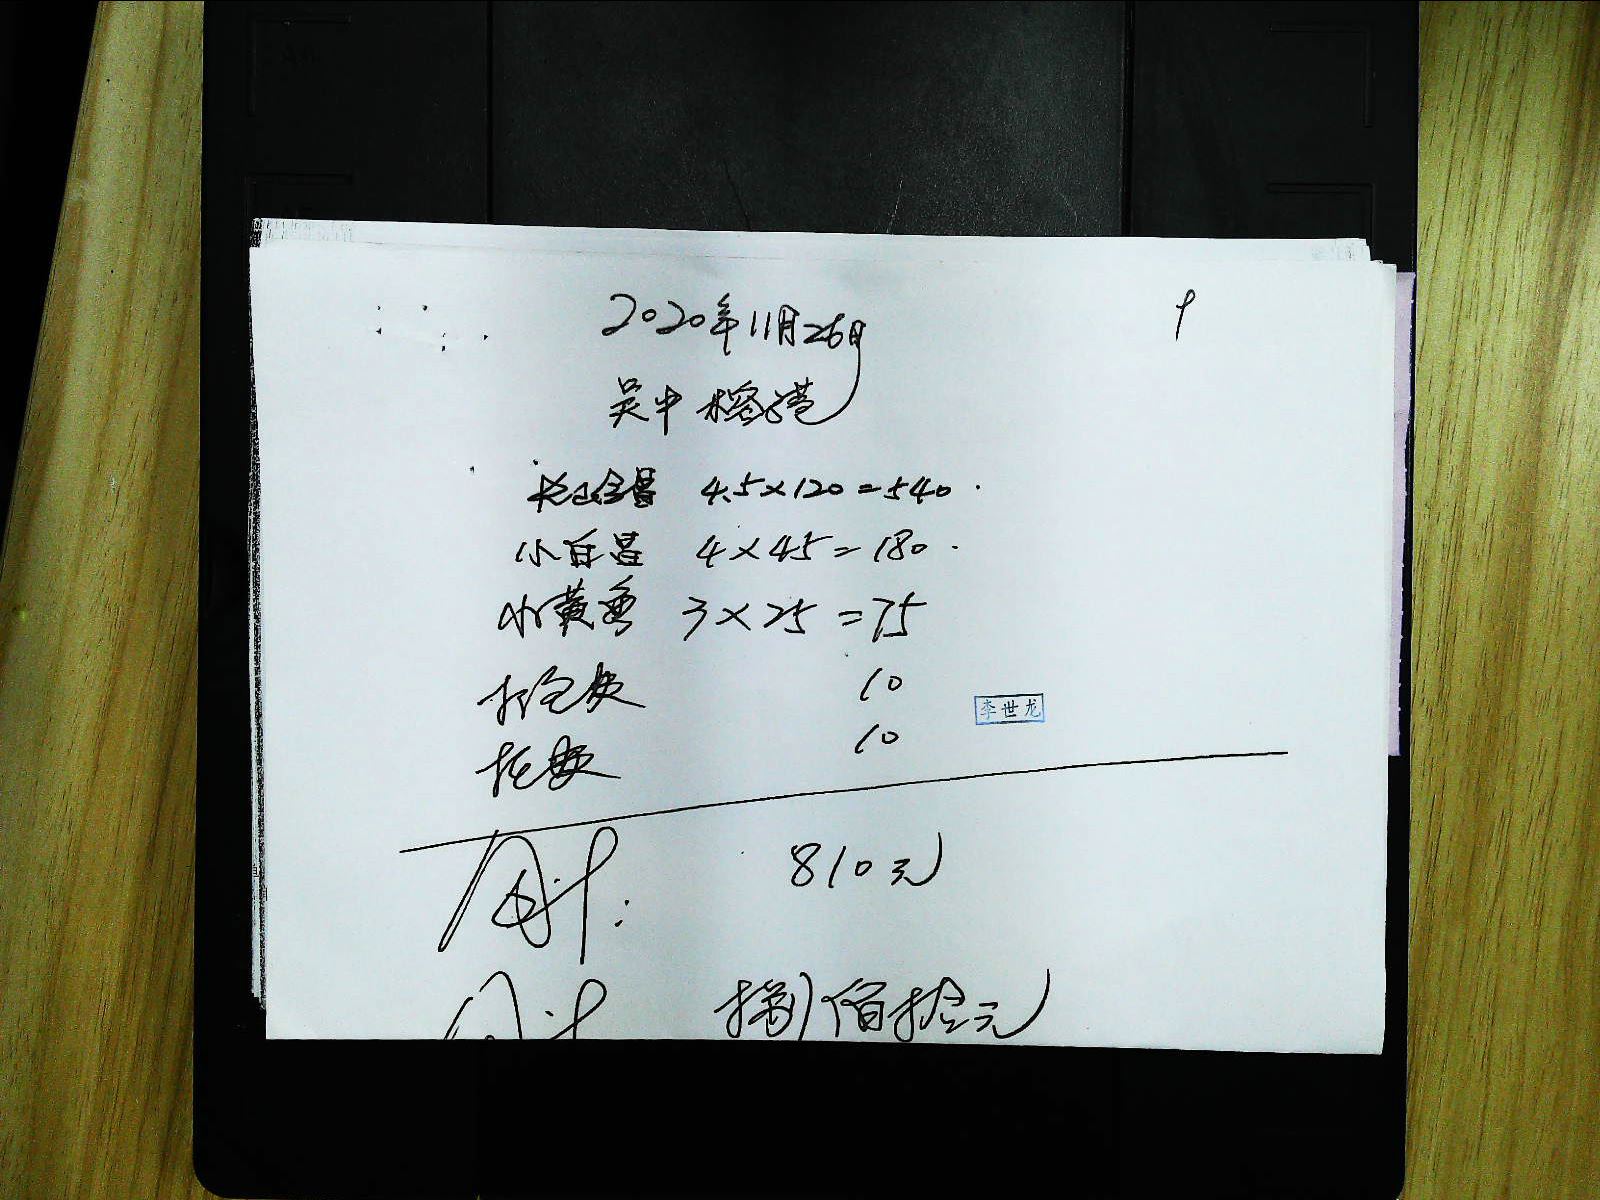 2020年11月26日
9
吴中 榕港
4.5×120=540
小白昌 4×45=180
小黄鱼 3×25=75
打包费 10
李世龙
托费 10
合计: 810元
合计 捌佰拾元